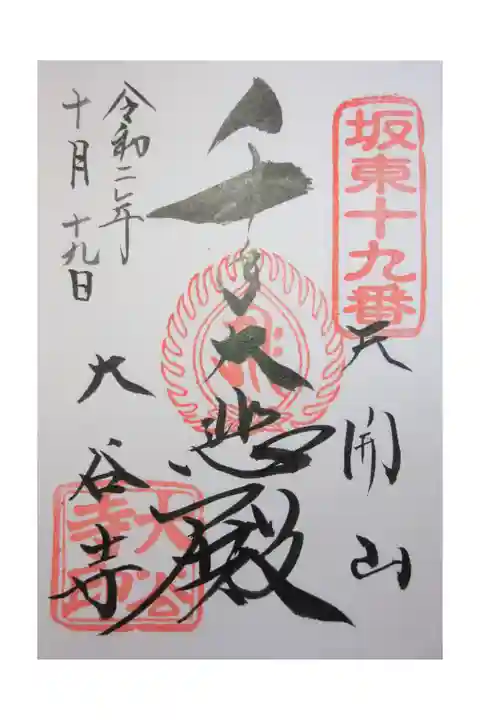 坂東十九番
天開山
千手大悲殿
大谷寺
大谷寺印
令和二年
十月十九日